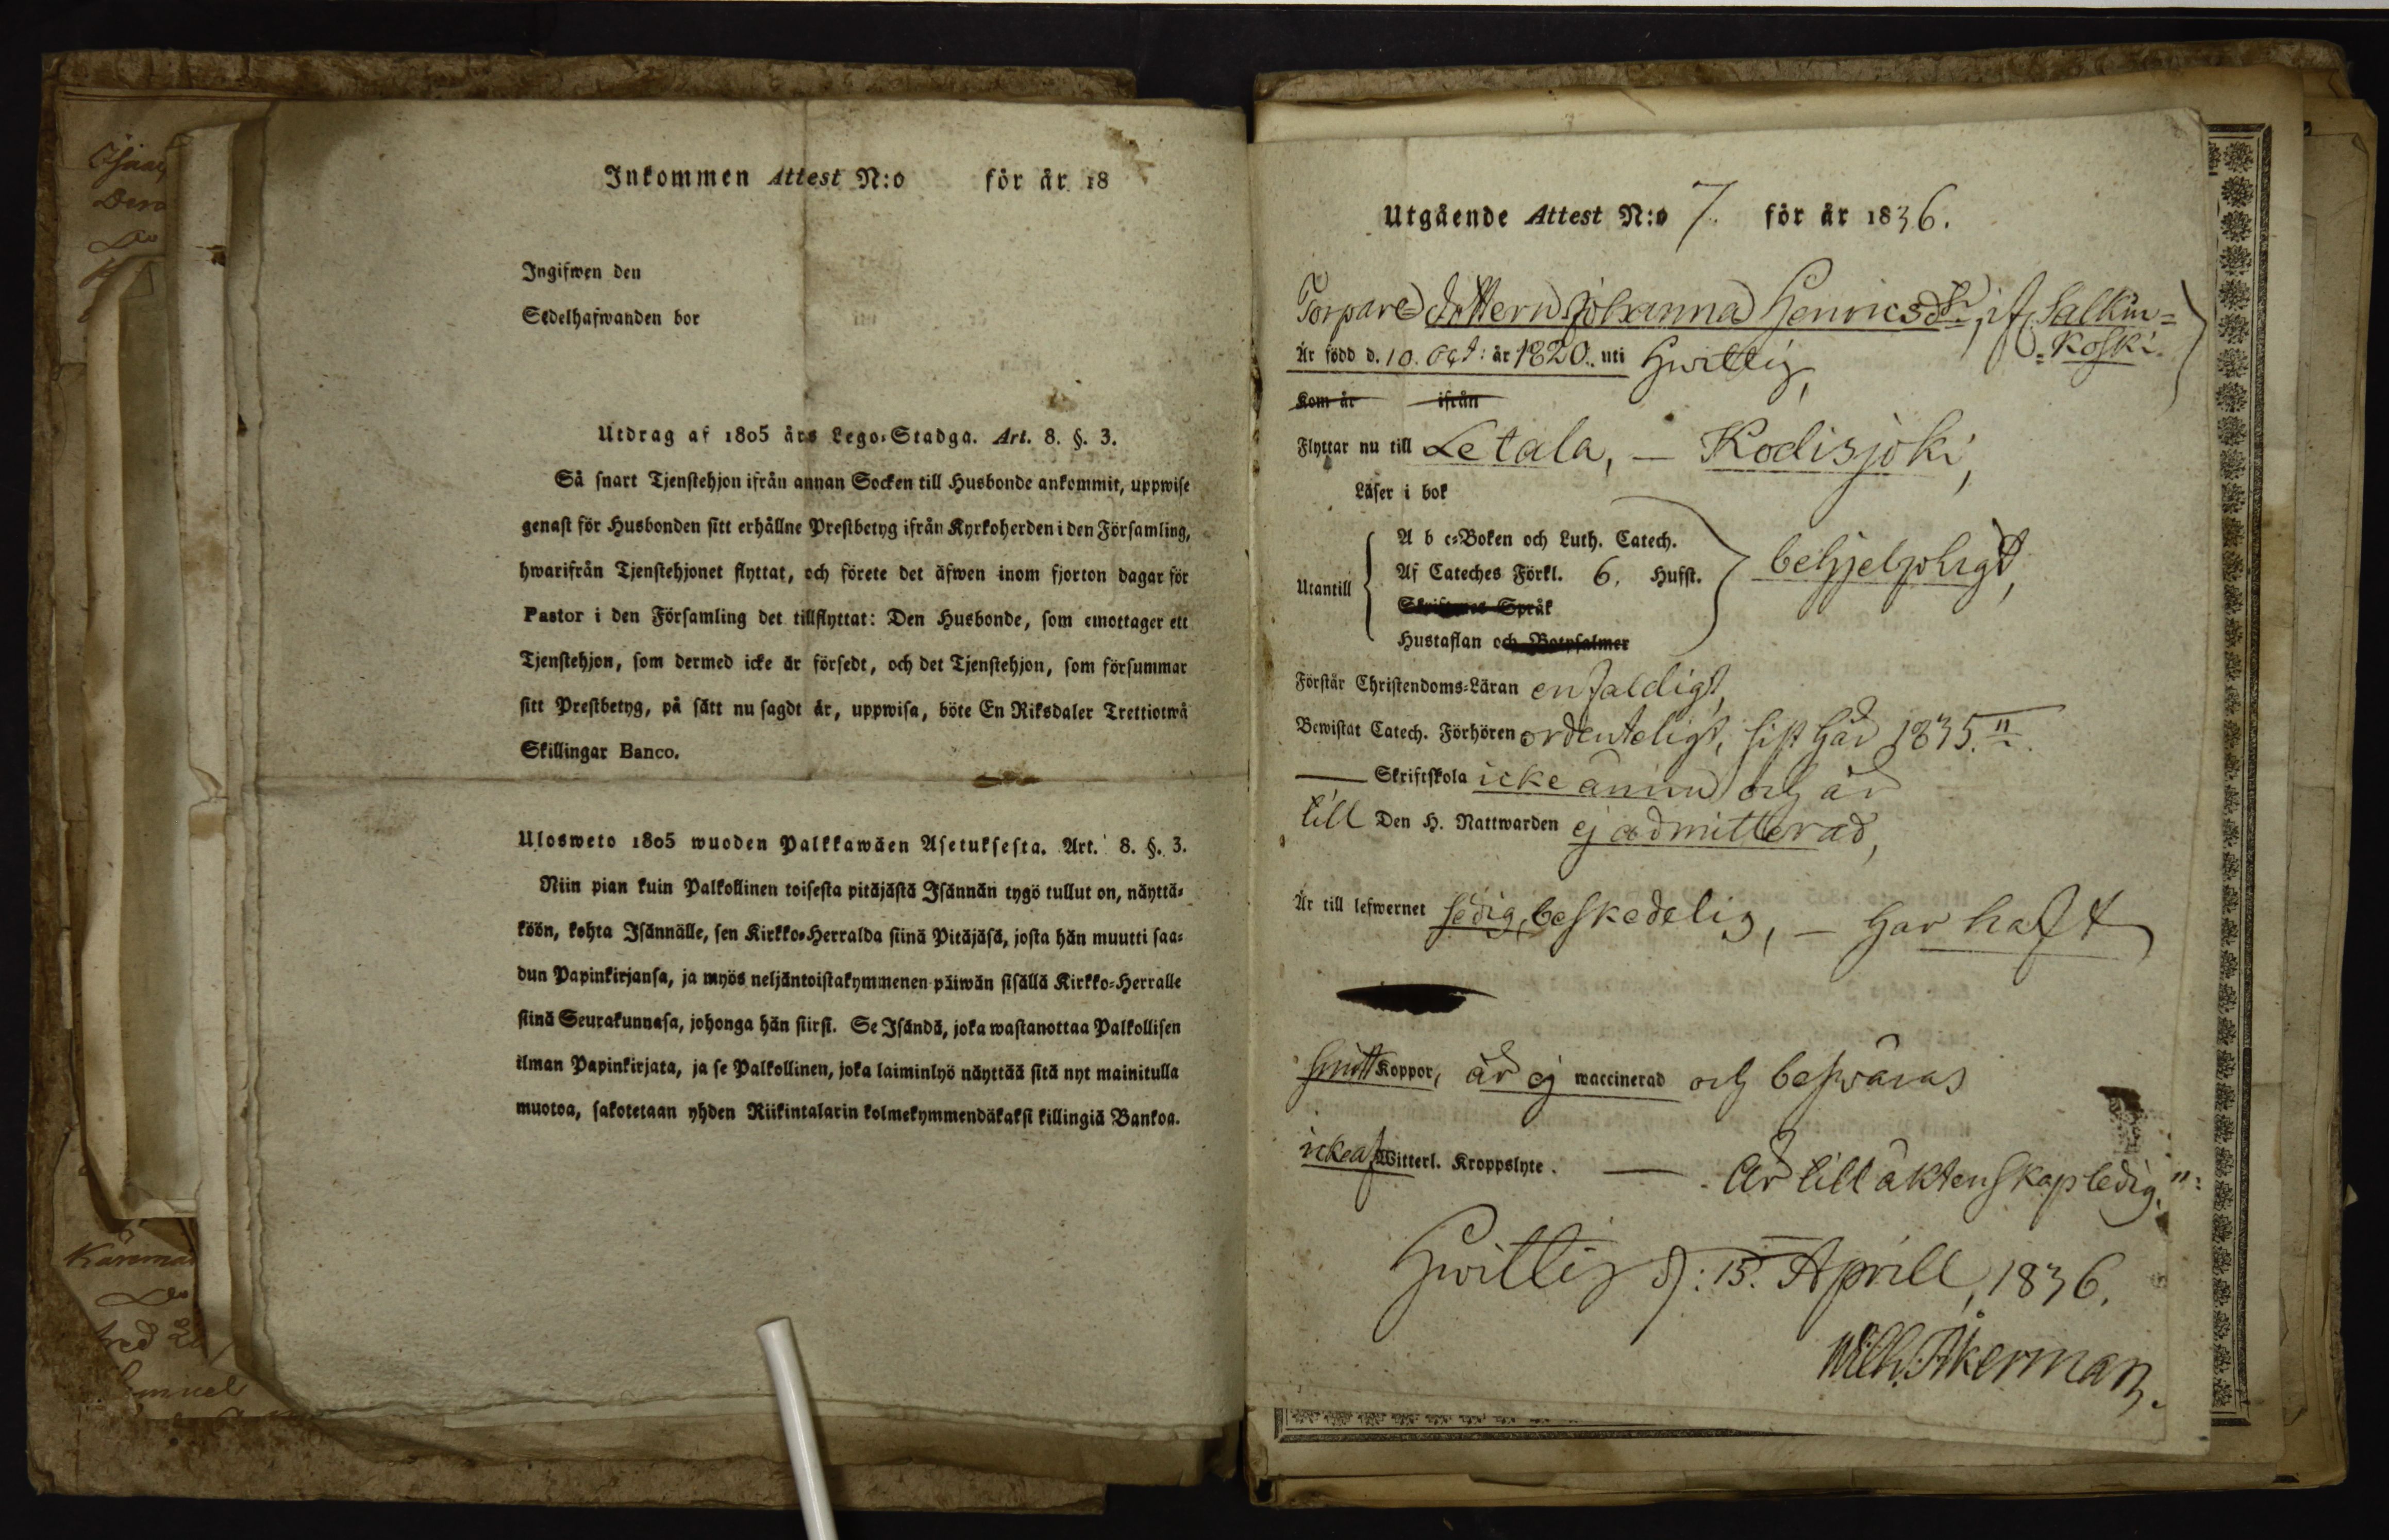 Inkommen Attest N:o för år 18
Ingifwen den
Sedelhafwanden bor
Utdrag af 1805 års Lego-Stadga. Art. 8. §. 3.
Så snart Tjenstehjon ifrån annan Socken till Husbonde ankommit, uppwise
genast för Husbonden sitt erhållne Prestbetyg ifrån Kyrkoherden i den Församling,
hwarifrån Tjenstehjonet flyttat, och förete det äfwen inom fjorton dagar för
Pastor i den Församling det tillflyttat: Den Husbonde, som emottager ett
Tjenstehjon, som dermed icke är försedt, och det Tjenstehjon, som försummar
sitt Prestbetyg, på sätt nu sagdt är, uppwisa, böte En Riksdaler Trettiotwå
Skillingar Banco.
Ulosweto 1805 wuoden Palkkawäen Asetuksesta. Art. 8. §. 3.
Niin pian kuin Palkollinen toisesta pitäjästä Isännän tygö tullut on, näyttä-
köön, kohta Isännälle, sen Kirkko-Herralda siinä Pitäjäsä, josta hän muutti saa-
dun Papinkirjansa, ja myös neljäntoistakymmenen päiwän sisällä Kirkko-Herralle
siinä Seurakunnasa, johonga hän siirsi. Se Isändä, joka wastanottaa Palkollisen
ilman Papinkirjata, ja se Palkollinen, joka laiminlyö näyttää sitä nyt mainitulla
muotoa, sakotetaan yhden Riikintalarin kolmekymmendäkaksi killingiä Bankoa.
Utgående Attest N:o 7. för år 1836.
Torpare dottern Johanna Henricsdr, if. Salkin=
=koski.
Är född d. 10. Oct: år 1820. uti Hwittis,
Kom år ifrån
Flyttar nu till Letala, — Kodisjoki,
Läser i bok
A b c-Boken och Luth. Catech.
Utantill Af Cateches Förkl. 6. Hufst. behjelpligt,
Skriftenes Språk
Hustaflan och Botpsalmer
Förstår Christendoms-Läran enfaldigt,
Bewistat Catech. Förhören ordenteligt, sist här 1835."
— Skriftskola icke ännu och är
till Den H. Nattwarden ej admitterad,
Är till lefwernet sedig, beskedelig, — har haft
Smitt Koppor, är ej waccinerad och beswäras
icke af Witterl. Kroppslyte. — Är till äktenskap ledig.":
Hwittis d: 15. Aprill, 1836.
Wilh. Åkerman.
Kärimä